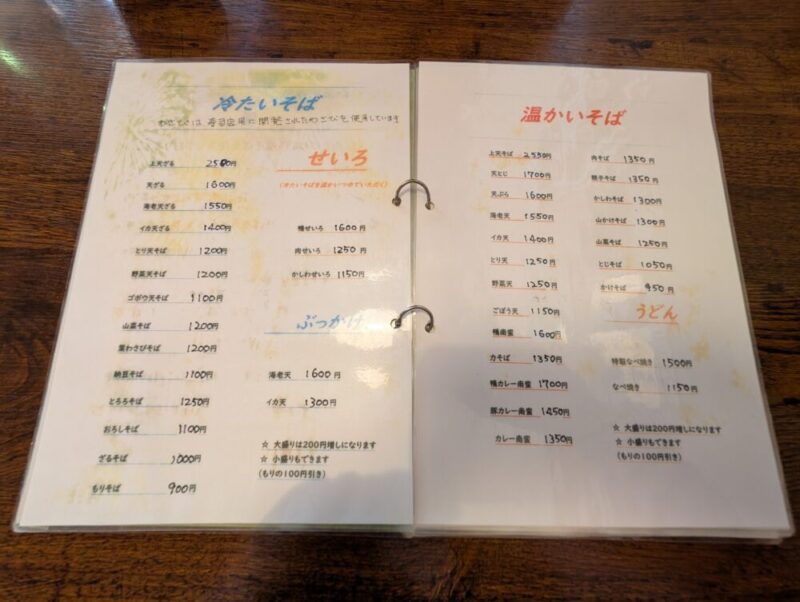 冷たいそば
わさびは、寿司店用に開発されたわさびを使用しています
上天ざる 2500円
天ざる 1600円
海老天ざる 1550円
イカ天ざる 1400円
とり天そば 1200円
野菜天そば 1200円
ゴボウ天そば 1100円
山菜そば 1200円
葉わさびそば 1200円
納豆そば 1100円
とろろそば 1250円
おろしそば 1100円
ざるそば 1000円
もりそば 900円
せいろ
(冷たいそばを温かいつゆでいただく)
鴨せいろ 1600円
肉せいろ 1250円
かしわせいろ 1150円
ぶっかけ
海老天 1600円
イカ天 1300円
☆ 大盛りは200円増しになります
☆ 小盛りもできます
(もりの100円引き)
温かいそば
上天そば 2550円
天とじ 1700円
天ぷら 1600円
海老天 1550円
イカ天 1400円
とり天 1250円
野菜天 1250円
ごぼう天 1150円
鴨南蛮 1600円
力そば 1350円
鴨カレー南蛮 1700円
豚カレー南蛮 1450円
カレー南蛮 1350円
肉そば 1350円
親子そば 1350円
かしわそば 1300円
山かけそば 1300円
山菜そば 1250円
とじそば 1050円
かけそば 950円
うどん
特製なべ焼き 1500円
なべ焼き 1150円
☆ 大盛りは200円増しになります
☆ 小盛りもできます
(もりの100円引き)